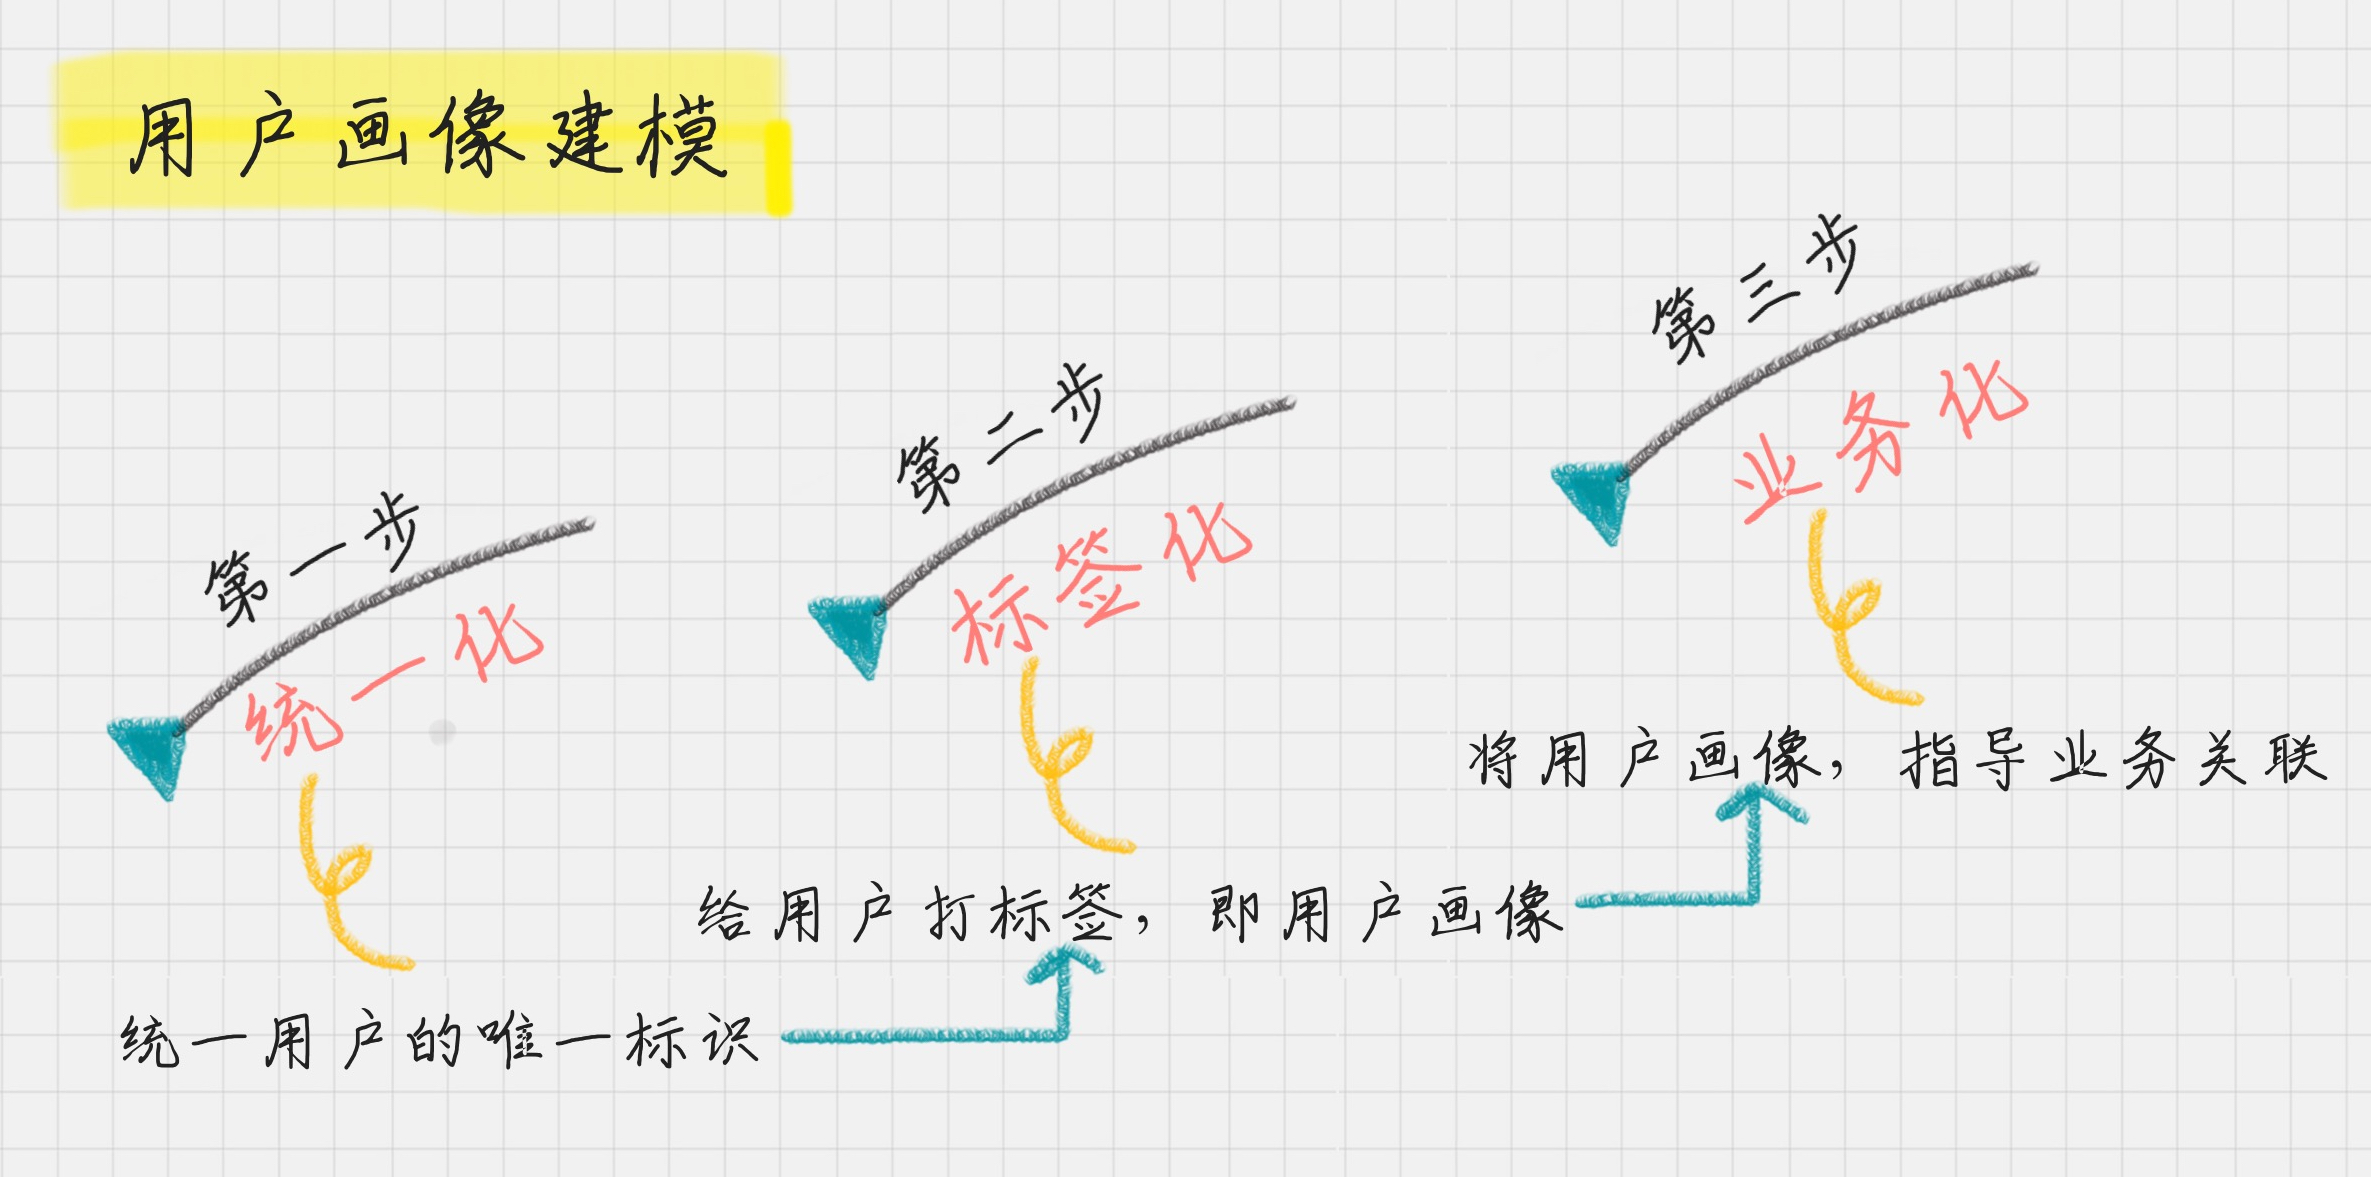 用户画像建模
第一步
统一化
统一用户的唯一标识
第二步
标签化
给用户打标签，即用户画像
第三步
业务化
将用户画像，指导业务关联